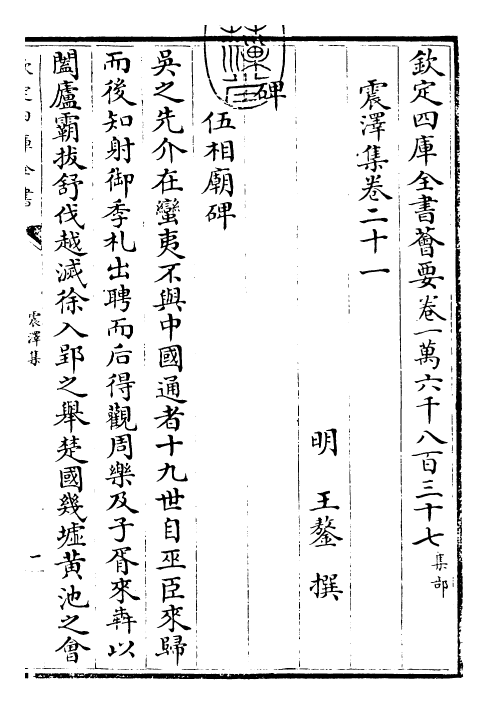 欽定四庫全書薈要卷一萬六千八百三十七集部
震澤集卷二十一
明 王鏊 撰
碑
伍相廟碑
吳之先介在蠻夷不與中國通者十九世自巫臣來歸
而後知射御季札出聘而后得觀周樂及子胥來犇以
闔廬霸拔舒伐越滅徐入郢之舉楚國幾墟黃池之會
欽定四庫全書
震澤集
一